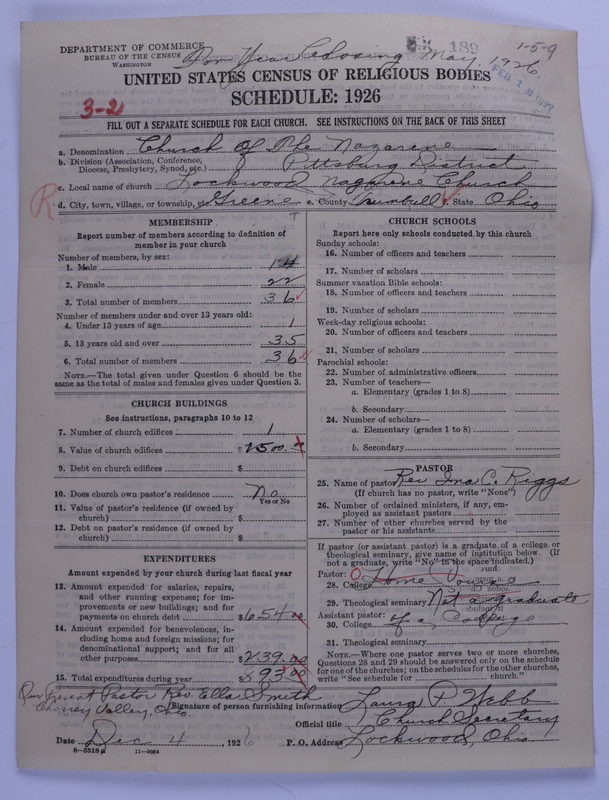 DEPARTMENT OF COMMERCE
BUREAU OF THE CENSUS
WASHINGTON
For Year Closing May, 1926.
189
1-5-9
FEB 1 2 1927
UNITED STATES CENSUS OF RELIGIOUS BODIES
SCHEDULE: 1926
3-2
FILL OUT A SEPARATE SCHEDULE FOR EACH CHURCH. SEE INSTRUCTIONS ON THE BACK OF THIS SHEET
a. Denomination Church Of The Nazarene
b. Division (Association, Conference, Diocese, Presbytery, Synod, etc.) Pittsburg District
c. Local name of church Lockwood Nazarene Church
R d. City, town, village, or township, etc. Greene e. County Trumbull f. State Ohio
MEMBERSHIP
Report number of members according to definition of
member in your church
Number of members, by sex:
1. Male 14
2. Female 22
3. Total number of members 36
Number of members under and over 13 years old:
4. Under 13 years of age 1
5. 13 years old and over 35
6. Total number of members 36
NOTE.—The total given under Question 6 should be
same as the total of males and females given under Question 3.
CHURCH BUILDINGS
See instructions, paragraphs 10 to 12
7. Number of church edifices 1
8. Value of church edifices $1500.00
9. Debt on church edifices $
10. Does church own pastor's residence No
Yes or No
11. Value of pastor's residence (if owned by
church) $
12. Debt on pastor's residence (if owned by
church) $
EXPENDITURES
Amount expended by your church during last fiscal year
13. Amount expended for salaries, repairs,
and other running expenses; for im-
provements or new buildings; and for
payments on church debt $654.00
14. Amount expended for benevolences, in-
cluding home and foreign missions; for
denominational support; and for all
other purposes $239.00
15. Total expenditures during year $893.00
CHURCH SCHOOLS
Report here only schools conducted by this church
Sunday schools:
16. Number of officers and teachers
17. Number of scholars
Summer vacation Bible schools:
18. Number of officers and teachers
19. Number of scholars
Week-day religious schools:
20. Number of officers and teachers
21. Number of scholars
Parochial schools:
22. Number of administrative officers
23. Number of teachers—
a. Elementary (grades 1 to 8)
b. Secondary
24. Number of scholars—
a. Elementary (grades 1 to 8)
b. Secondary
PASTOR
25. Name of pastor Rev. Ina C. Riggs
(If church has no pastor, write "None")
26. Number of ordained ministers, if any, em-
ployed as assistant pastors
27. Number of other churches served by the
pastor or his assistants
If pastor (or assistant pastor) is a graduate of a college or
theological seminary, give name of institution below. (If
not a graduate, write "No" in the space indicated.)
Pastor: O
28. College Home
29. Theological seminary Not a graduate
Assistant pastor:
30. College of a College
31. Theological seminary
NOTE.—Where one pastor serves two or more churches,
Questions 28 and 29 should be answered only on the schedule
for one of the churches; on the schedules for the other churches,
write "See schedule for church."
Our Present Pastor Rev. Ella Smith
Cherry Valley, Ohio
Signature of person furnishing information Laura P. Webb
Official title Church Secretary
Date Dec 4, 1926 P. O. Address Lockwood, Ohio
8-5518a 11-9084